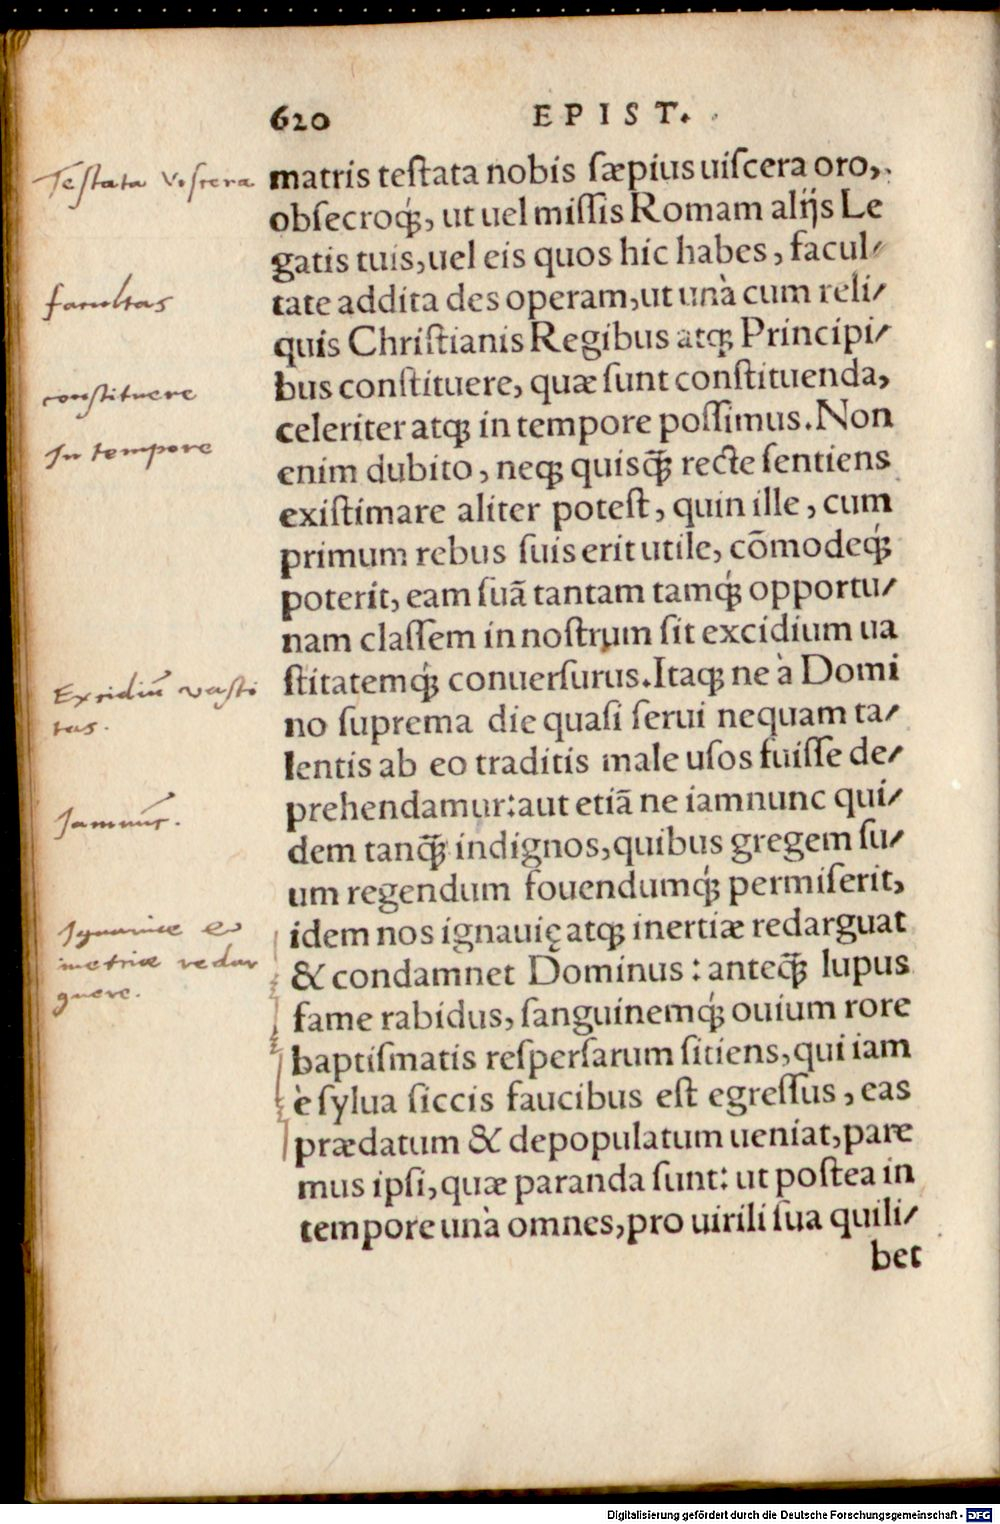 620 EPIST.
matris testata nobis sæpius uiscera oro,
obsecroq́ꝫ, ut uel missis Romam alijs Le
gatis tuis, uel eis quos hic habes, facul-
tate addita des operam, ut unà cum reli-
quis Christianis Regibus atqꝫ Principi-
bus constituere, quæ sunt constituenda,
celeriter atqꝫ in tempore possimus. Non
enim dubito, neqꝫ quisq̃ꝫ recte sentiens
existimare aliter potest, quin ille, cum
primum rebus suis erit utile, cõmodeq́ꝫ
poterit, eam suã tantam tamq́ꝫ opportu-
nam classem in nostrum sit excidium ua
stitatemq́ꝫ conuersurus. Itaqꝫ ne à Domi
no suprema die quasi serui nequam ta-
lentis ab eo traditis male usos fuisse de-
prehendamur: aut etiã ne iamnunc qui-
dem tanq̃ꝫ indignos, quibus gregem su-
um regendum fouendumq́ꝫ permiserit,
idem nos ignauię atqꝫ inertiæ redarguat
& condamnet Dominus: anteq̃ꝫ lupus
fame rabidus, sanguinemq́ꝫ ouium rore
baptismatis respersarum sitiens, qui iam
è sylua siccis faucibus est egressus, eas
prædatum & depopulatum ueniat, pare
mus ipsi, quæ paranda sunt: ut postea in
tempore unà omnes, pro uirili sua quili-
bet
Testata viscera
facultas
constituere
In tempore
Excidiũ vasti
tas.
Iamnũc.
Ignauiæ et
inertiæ redar
guere.
Digitalisierung gefördert durch die Deutsche Forschungsgemeinschaft - DFG